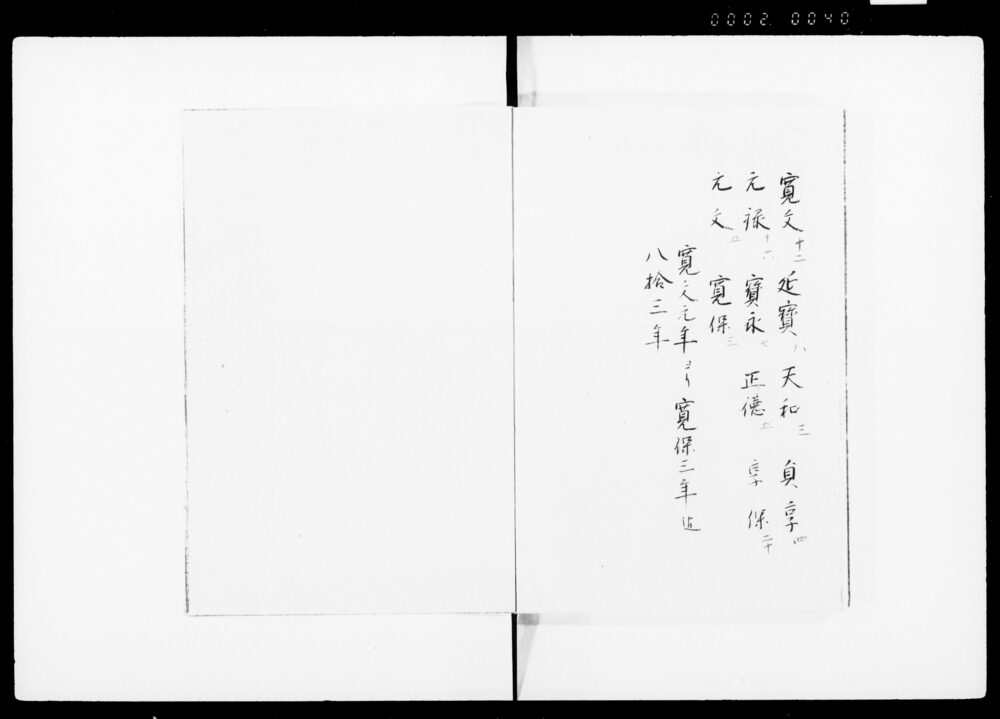 0002 0040
寛文十二 延寶八 天和三 貞享四
元禄十六 寶永七 正德五 享保二十
元文五 寛保三
寛文元年ヨリ寛保三年迠
八拾三年